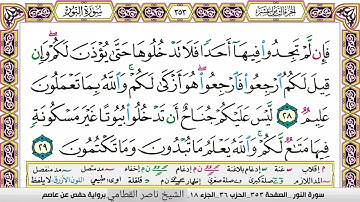 الجزء الثامن عشر ٣٥٣ سورة النور
فَإِن لَّمْ تَجِدُوا۟ فِيهَآ أَحَدًا فَلَا تَدْخُلُوهَا حَتَّىٰ يُؤْذَنَ لَكُمْ ۖ وَإِن
قِيلَ لَكُمُ ٱرْجِعُوا۟ فَٱرْجِعُوا۟ ۖ هُوَ أَزْكَىٰ لَكُمْ ۚ وَٱللَّهُ بِمَا تَعْمَلُونَ
عَلِيمٌ ٢٨ لَّيْسَ عَلَيْكُمْ جُنَاحٌ أَن تَدْخُلُوا۟ بُيُوتًا غَيْرَ مَسْكُونَةٍ
فِيهَا مَتَـٰعٌ لَّكُمْ ۚ وَٱللَّهُ يَعْلَمُ مَا تُبْدُونَ وَمَا تَكْتُمُونَ ٢٩
سورة النور ـ الصفحة ٣٥٣ـ الحزب ٣٦ـ الجزء ١٨ الشيخ ناصر القطامي برواية حفص عن عاصم